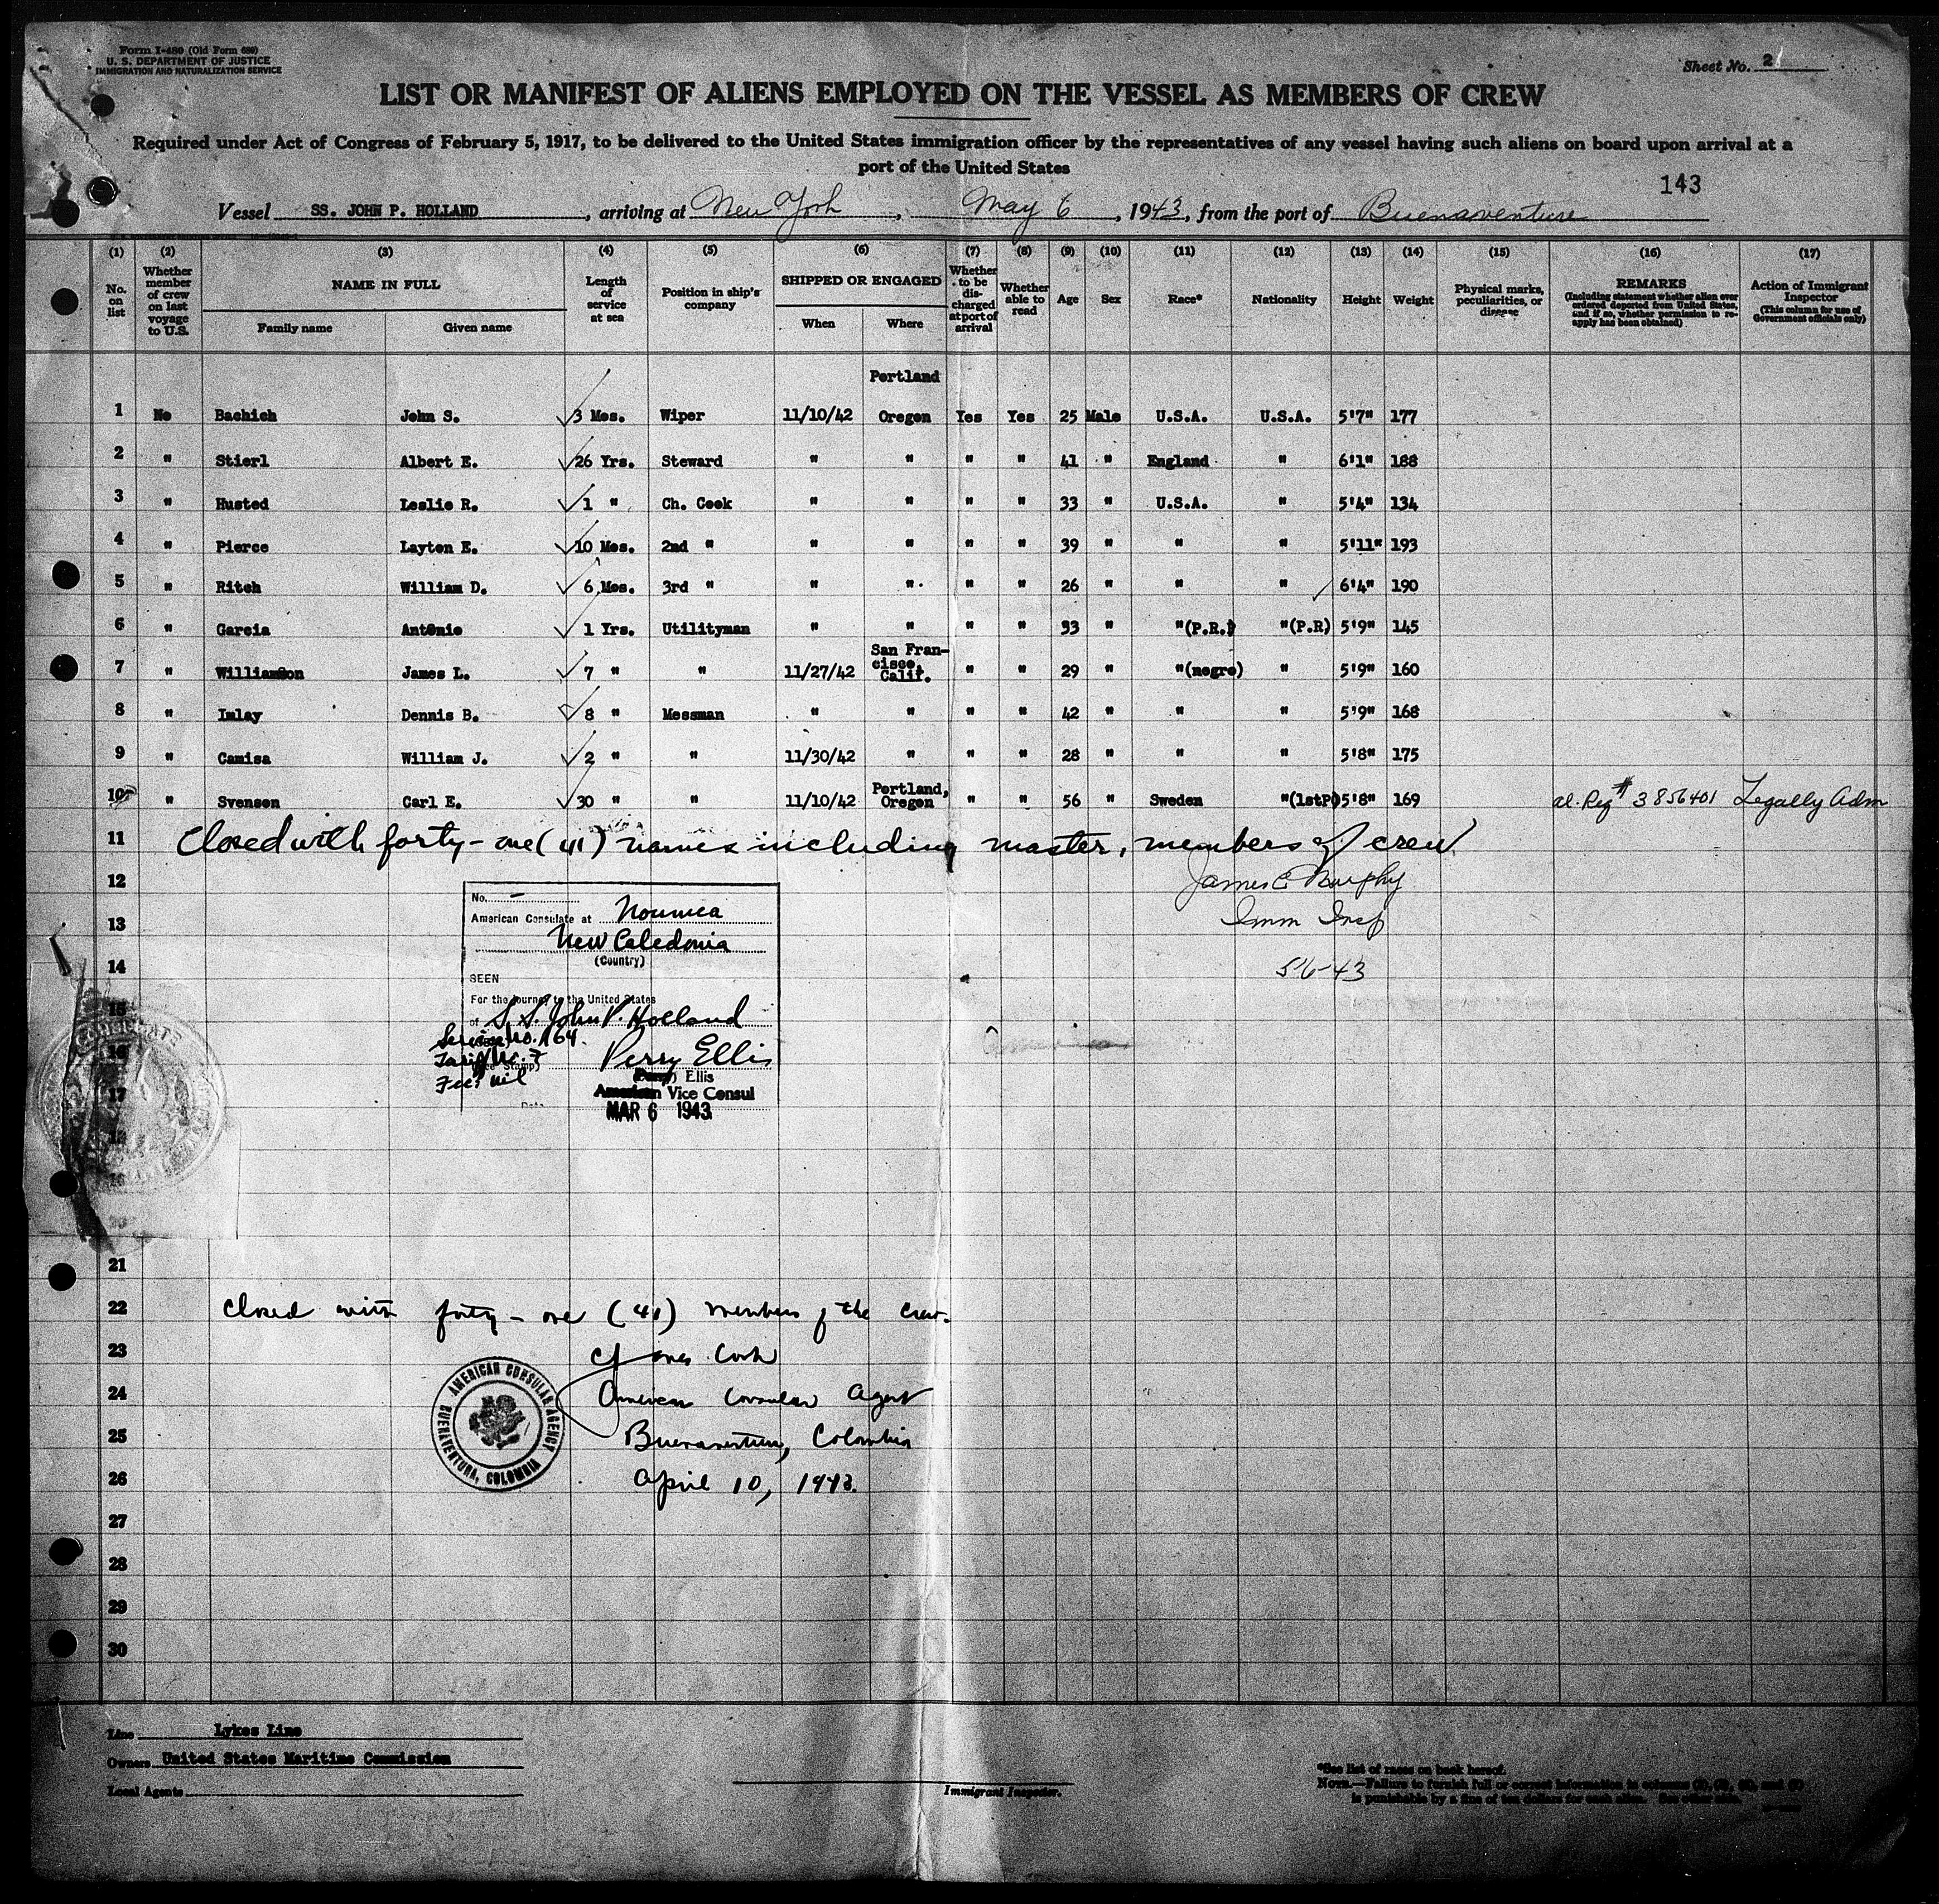 Form I-480 (Old Form 680)
U. S. DEPARTMENT OF JUSTICE
IMMIGRATION AND NATURALIZATION SERVICE
Sheet No. 2
LIST OR MANIFEST OF ALIENS EMPLOYED ON THE VESSEL AS MEMBERS OF CREW
Required under Act of Congress of February 5, 1917, to be delivered to the United States immigration officer by the representatives of any vessel having such aliens on board upon arrival at a
port of the United States
143
Vessel SS. JOHN P. HOLLAND, arriving at New York, May 6, 1943, from the port of Buenaventure
(1) (2) (3) (4) (5) (6) (7) (8) (9) (10) (11) (12) (13) (14) (15) (16) (17)
No. on list
Whether member of crew on last voyage to U.S.
NAME IN FULL
Family name
Given name
Length of service at sea
Position in ship's company
SHIPPED OR ENGAGED
When
Where
Whether to be discharged at port of arrival
Whether able to read
Age
Sex
Race*
Nationality
Height
Weight
Physical marks, peculiarities, or disease
REMARKS
(Including statement whether alien ever ordered deported from United States, and if so, whether permission to reapply has been obtained)
Action of Immigrant Inspector
(This column for use of Government officials only)
Portland
1 No Bachich John S. 3 Mos. Wiper 11/10/42 Oregon Yes Yes 25 Male U.S.A. U.S.A. 5'7" 177
2 " Stierl Albert E. 26 Yrs. Steward " " " " 41 " England " 6'1" 188
3 " Husted Leslie R. 1 " Ch. Cook " " " " 33 " U.S.A. " 5'4" 134
4 " Pierce Layton E. 10 Mos. 2nd " " " " " 39 " " " 5'11" 193
5 " Ritch William D. 6 Mos. 3rd " " " " " 26 " " " 6'4" 190
6 " Garcia Antonio 1 Yrs. Utilityman " " " " 33 " "(P.R.) "(P.R) 5'9" 145
San Fran-
cisco,
7 " Williamson James L. 7 " " 11/27/42 Calif. " " 29 " "(negro) " 5'9" 160
8 " Imlay Dennis B. 8 " Messman " " " " 42 " " " 5'9" 168
9 " Camisa William J. 2 " " 11/30/42 " " " 28 " " " 5'8" 175
Portland,
10 " Svenson Carl E. 30 " " 11/10/42 Oregon " " 56 " Sweden "(1stP) 5'8" 169 al. Reg # 3856401 Legally Adm
11 Closed with forty-one (41) names including master, members of crew
12 James E Murphy
13 Imm Insp
14 5-6-43
No. -
American Consulate at Noumea
New Caledonia
(Country)
SEEN
For the journey to the United States
of S.S. John P. Holland
Service No. 164.
Tariff No. 7
Fee: nil
Perry Ellis
Ellis
American Vice Consul
Date
MAR 6 1943
15
16
17
21
22 Closed with forty-one (41) members of the crew.
23
24 American Consular Agent
25 Buenaventura, Colombia
26 April 10, 1943.
AMERICAN CONSULAR AGENCY
BUENAVENTURA, COLOMBIA
27
28
29
30
Line Lykes Line
Owners United States Maritime Commission
Local Agents
Immigrant Inspector.
*See list of races on back hereof.
NOTE.—Failure to furnish full or correct information in columns
is punishable by a fine of ten dollars for each alien. See other side.